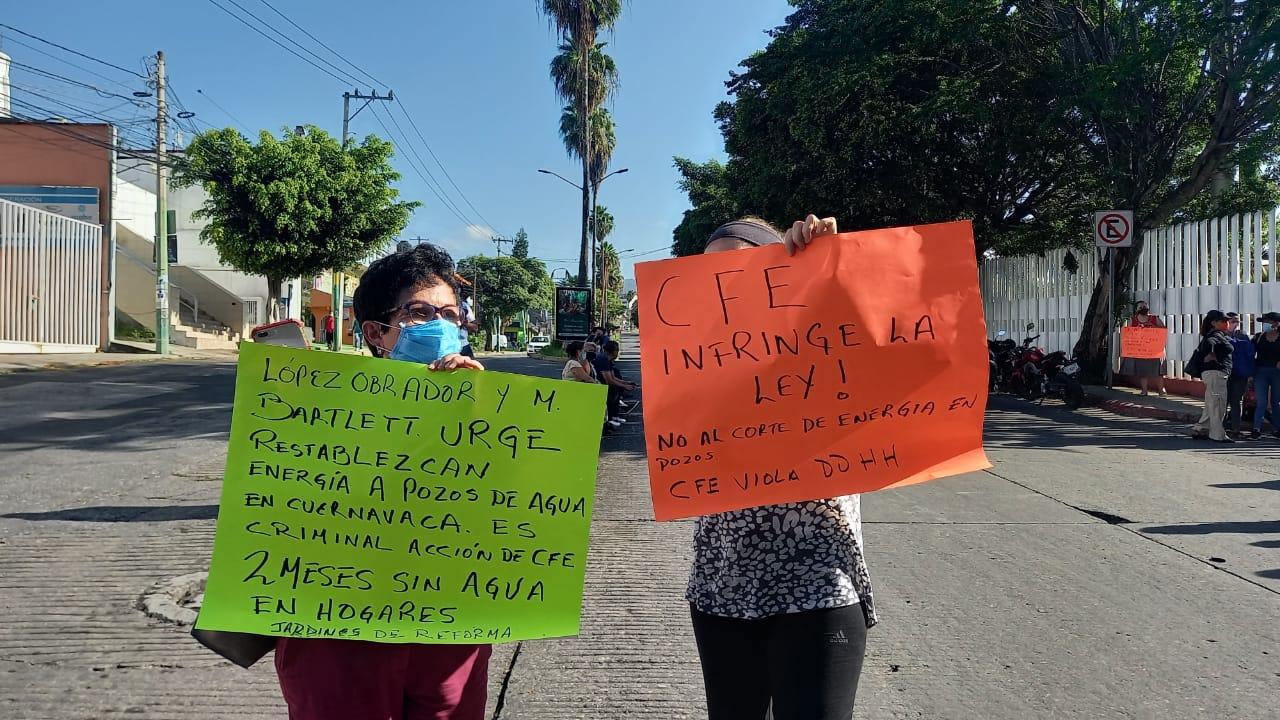 LÓPEZ OBRADOR Y M.
BARTLETT. URGE
RESTABLEZCAN
ENERGÍA A POZOS DE AGUA
EN CUERNAVACA. ES
CRIMINAL ACCIÓN DE CFE
2 MESES SIN AGUA
EN HOGARES
JARDINES DE REFORMA
CFE
INFRINGE LA
LEY!
NO AL CORTE DE ENERGIA EN
POZOS.
CFE VIOLA DDHH
E
adidas